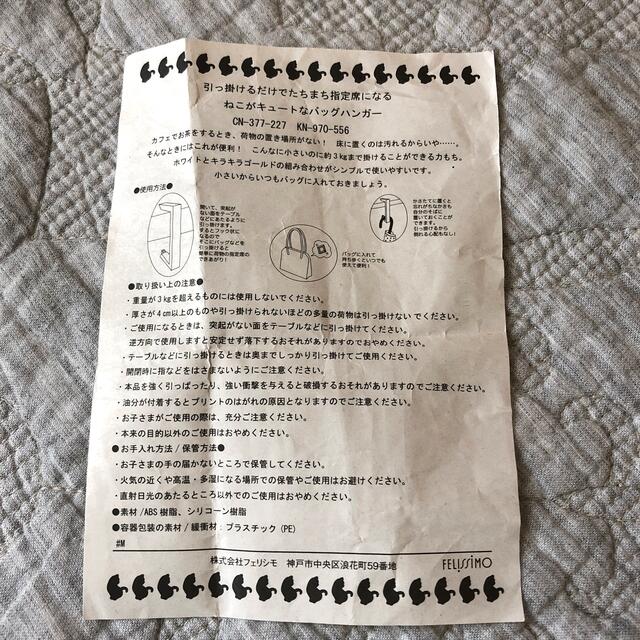 引っ掛けるだけでたちまち指定席になる
ねこがキュートなバッグハンガー
CN-377-227 KN-970-556
カフェでお茶をするとき、荷物の置き場所がない！ 床に置くのは汚れるからいや……。
そんなときにはこれが便利！ こんなに小さいのに約3kgまで掛けることができる力もち。
ホワイトとキラキラゴールドの組み合わせがシンプルで使いやすいです。
小さいからいつもバッグに入れておきましょう。
●使用方法●
開いて、突起が
ない面をテーブル
などにあたるように
引っ掛けます。
するとフック状に
なるので
そこにバッグなどを
引っ掛けると
簡単に荷物の指定席の
できあがり！
バッグに入れて
持ち歩くといつでも
使えて便利！
かさたてに置くと
忘れがちなかさも
自分のそばに
置いておくことが
できます。
引っ掛けるから
倒れる心配もなし！
●取り扱い上の注意●
・重量が3kgを超えるものには使用しないでください。
・厚さが4cm以上のものや引っ掛けられないほどの多量の荷物は引っ掛けないでください。
・ご使用になるときは、突起がない面をテーブルなどに引っ掛けてください。
逆方向で使用しますと安定せず落下するおそれがありますのでおやめください。
・テーブルなどに引っ掛けるときは奥までしっかり引っ掛けてご使用ください。
・開閉時に指などをはさまないようにご注意ください。
・本品を強く引っぱったり、強い衝撃を与えると破損するおそれがありますのでご注意ください。
・油分が付着するとプリントのはがれの原因となりますのでご注意ください。
・お子さまがご使用の際は、充分ご注意ください。
・本来の目的以外のご使用はおやめください。
●お手入れ方法/保管方法●
・お子さまの手の届かないところで保管してください。
・火気の近くや高温・多湿になる場所での保管やご使用はお避けください。
・直射日光のあたるところ以外でのご使用はおやめください。
●素材/ABS樹脂、シリコーン樹脂
●容器包装の素材/緩衝材：プラスチック(PE)
#M
株式会社フェリシモ 神戸市中央区浪花町59番地 FELISSIMO